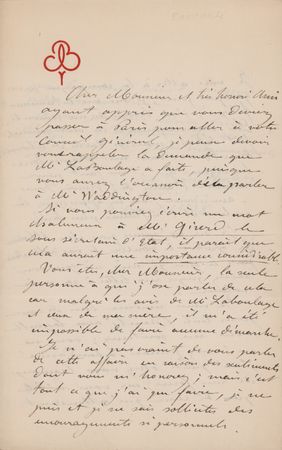 Cher Monsieur et très honoré Ami
ayant appris que vous deviez
passer à Paris pour aller à votre
Conseil général, je pense devoir
vous rappeler la demande que
Mr Laboulaye a faite, puisque
vous aurez l'occasion de la parler
à Mr Waddington.
Si vous pouviez écrire un mot
chaleureux à Mr Girerd le
sous secrétaire d'Etat, il paraît que
cela aurait une importance considérable.
Vous êtes, cher Monsieur, la seule
personne à qui j'ose parler de cela
car malgré les avis de Mr Laboulaye
et ceux de ma mère, il m'a été
impossible de faire aucune démarche.
Je n'ai pas craint de vous parler
de cette affaire en raison des sentiments
dont vous m'honorez ; mais c'est
tout ce que j'ai pu faire, je ne
puis et je ne sais solliciter des
encouragements si personnels.